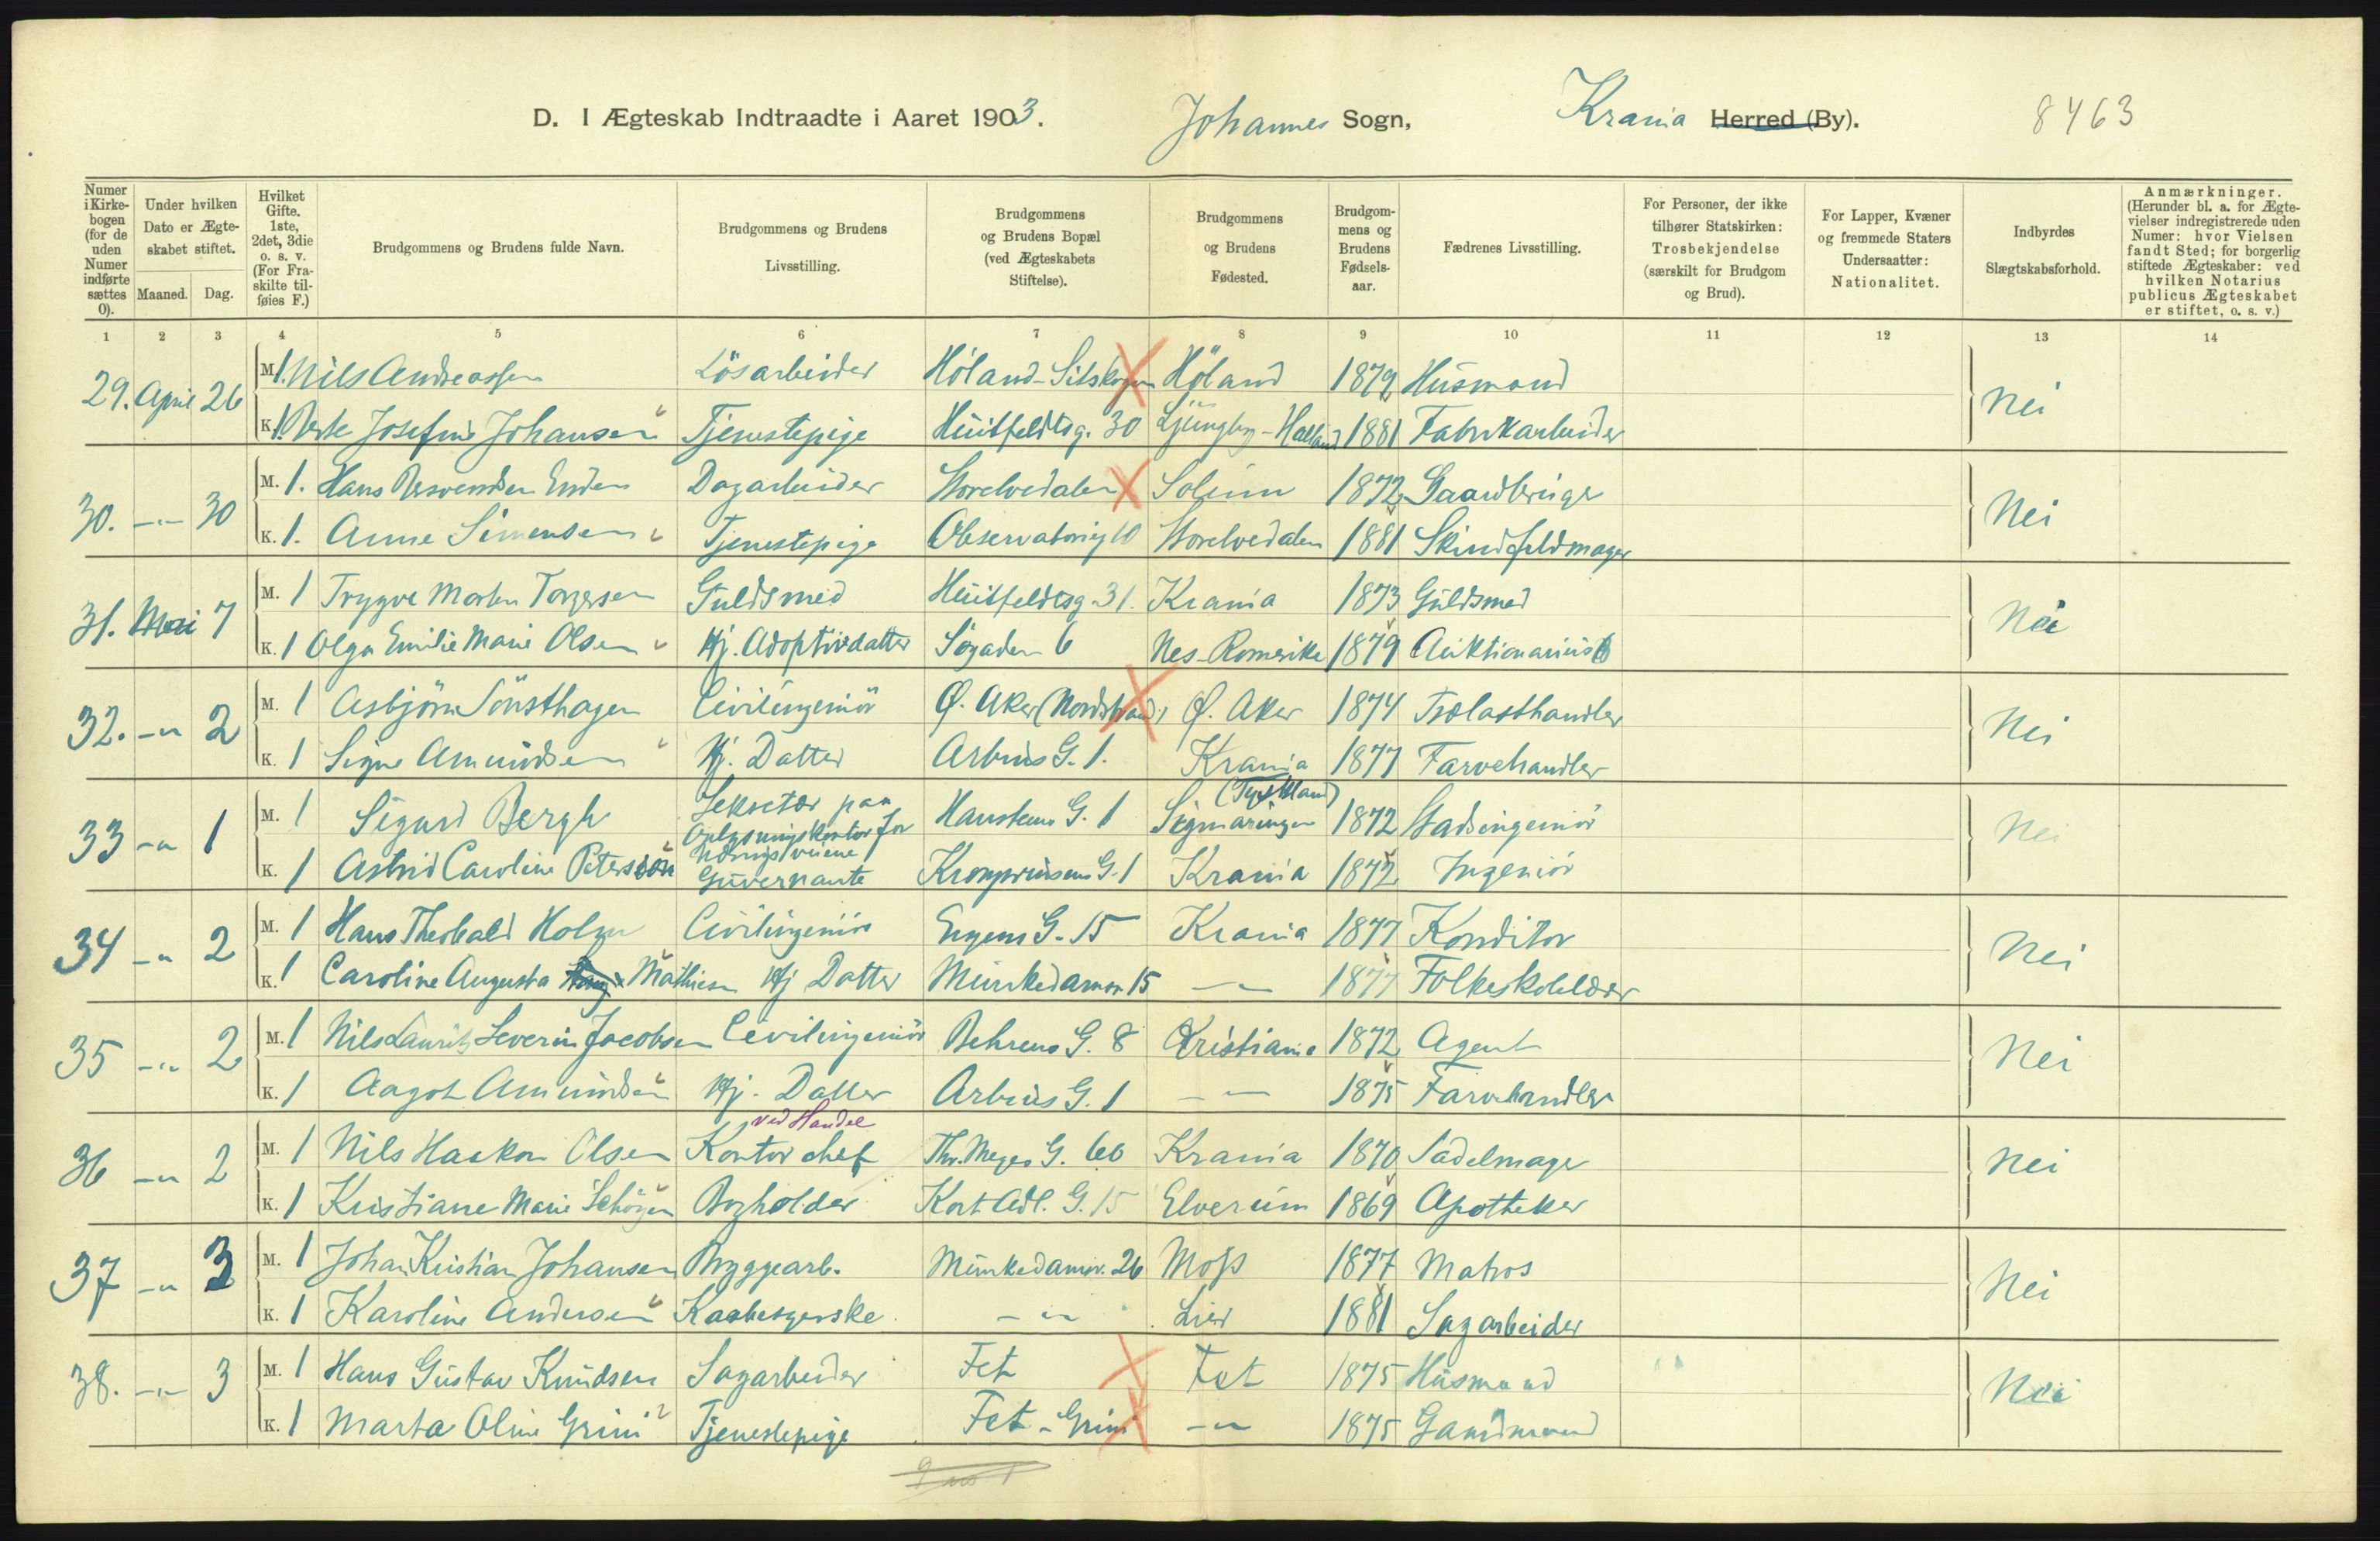 D. I Ægteskab Indtraadte i Aaret 1903. Johannes Sogn, Krania Herred (By). 8463
Numer i Kirkebogen (for de uden Numer indførte sættes 0).
Under hvilken Dato er Ægteskabet stiftet.
Maaned. Dag.
Hvilket Gifte. 1ste, 2det, 3die o. s. v. (For Fraskilte tilføies F.)
Brudgommens og Brudens fulde Navn.
Brudgommens og Brudens Livsstilling.
Brudgommens og Brudens Bopæl (ved Ægteskabets Stiftelse).
Brudgommens og Brudens Fødested.
Brudgommens og Brudens Fødselsaar.
Fædrenes Livsstilling.
For Personer, der ikke tilhører Statskirken: Trosbekjendelse (særskilt for Brudgom og Brud).
For Lapper, Kvæner og fremmede Staters Undersaatter: Nationalitet.
Indbyrdes Slægtskabsforhold.
Anmærkninger. (Herunder bl. a. for Ægtevielser indregistrerede uden Numer: hvor Vielsen fandt Sted; for borgerlig stiftede Ægteskaber: ved hvilken Notarius publicus Ægteskabet er stiftet, o. s. v.)
1 2 3 4 5 6 7 8 9 10 11 12 13 14
29. April 26 M. 1. Nils Andreassen Løsarbeider Høland - Høland 1879 Husmand Nei
K. 1. Josefine Johansen Tjenestepige Huitfeldtsg. 30 Ljungby - Halland 1881 Fabrikarbeider
30. -"- 30 M. 1. Hans Dagarbeider Storelvedalen Solum 1872 Gaardbruger Nei
K. 1. Anne Simensen Tjenestepige Observatorieg 10 Storelvedalen 1881 Skindfeldmager
31. Mai 7 M. 1 Trygve Morten Torgersen Guldsmed Huitfeldtsg. 31. Krania 1873 Guldsmed Nei
K. 1 Olga Emilie Marie Olsen Hj. Adoptivdatter Søgaden 6 Nes Romerike 1879 Auktionarius
32. -"- 2 M. 1 Asbjørn Sønsthagen Civilingeniör Ø. Aker (Nordstrand) Ø. Aker 1874 Trælasthandler Nei
K. 1 Signe Amundsen Hj. Datter Arbins G. 1. Krania 1877 Farvehandler
33 -"- 1 M. 1 Sigurd Bergh Sekretær paa Oplysningskontor for Næringsveiene Hansteens G. 1 Sigmaringen (Tyskland) 1872 Stadsingeniör Nei
K. 1 Astrid Caroline Peterson Guvernante Kronprinsens G. 1 Krania 1872 Ingeniör
34 -"- 2 M. 1 Hans Theobald Holm Civilingeniör G. 15 Krania 1877 Konditor Nei
K. 1 Caroline Augusta Mathiesen Hj Datter Munkedamsv 15 -"- 1877 Folkeskolelærer
35 -"- 2 M. 1 Nils Lauritz Severin Jacobsen Civilingeniör Behrens G. 8 Kristiania 1872 Agent Nei
K. 1 Aagot Amundsen Hj. Datter Arbins G. 1 -"- 1875 Farvehandler
36 -"- 2 M. 1 Nils Haakon Olsen Kontorchef ved Handel Thv. Meyes G. 66 Krania 1870 Sadelmager Nei
K. 1 Kristiane Marie Bogholder Kort Adl. G. 15 Elverum 1869 Apotheker
37 -"- 3 M. 1 Johan Kristian Johansen Bryggearb. Munkedamsv. 26 Moss 1877 Matros Nei
K. 1 Karoline Andersen Kaabesyerske -"- Lier 1881 Sagarbeider
38. -"- 3 M. 1 Hans Gustav Knudsen Sagarbeider Fet Fet 1875 Husmand Nei
K. 1 Marta Oline Grini Tjenestepige Fet - Grini -"- 1875 Gaardmand